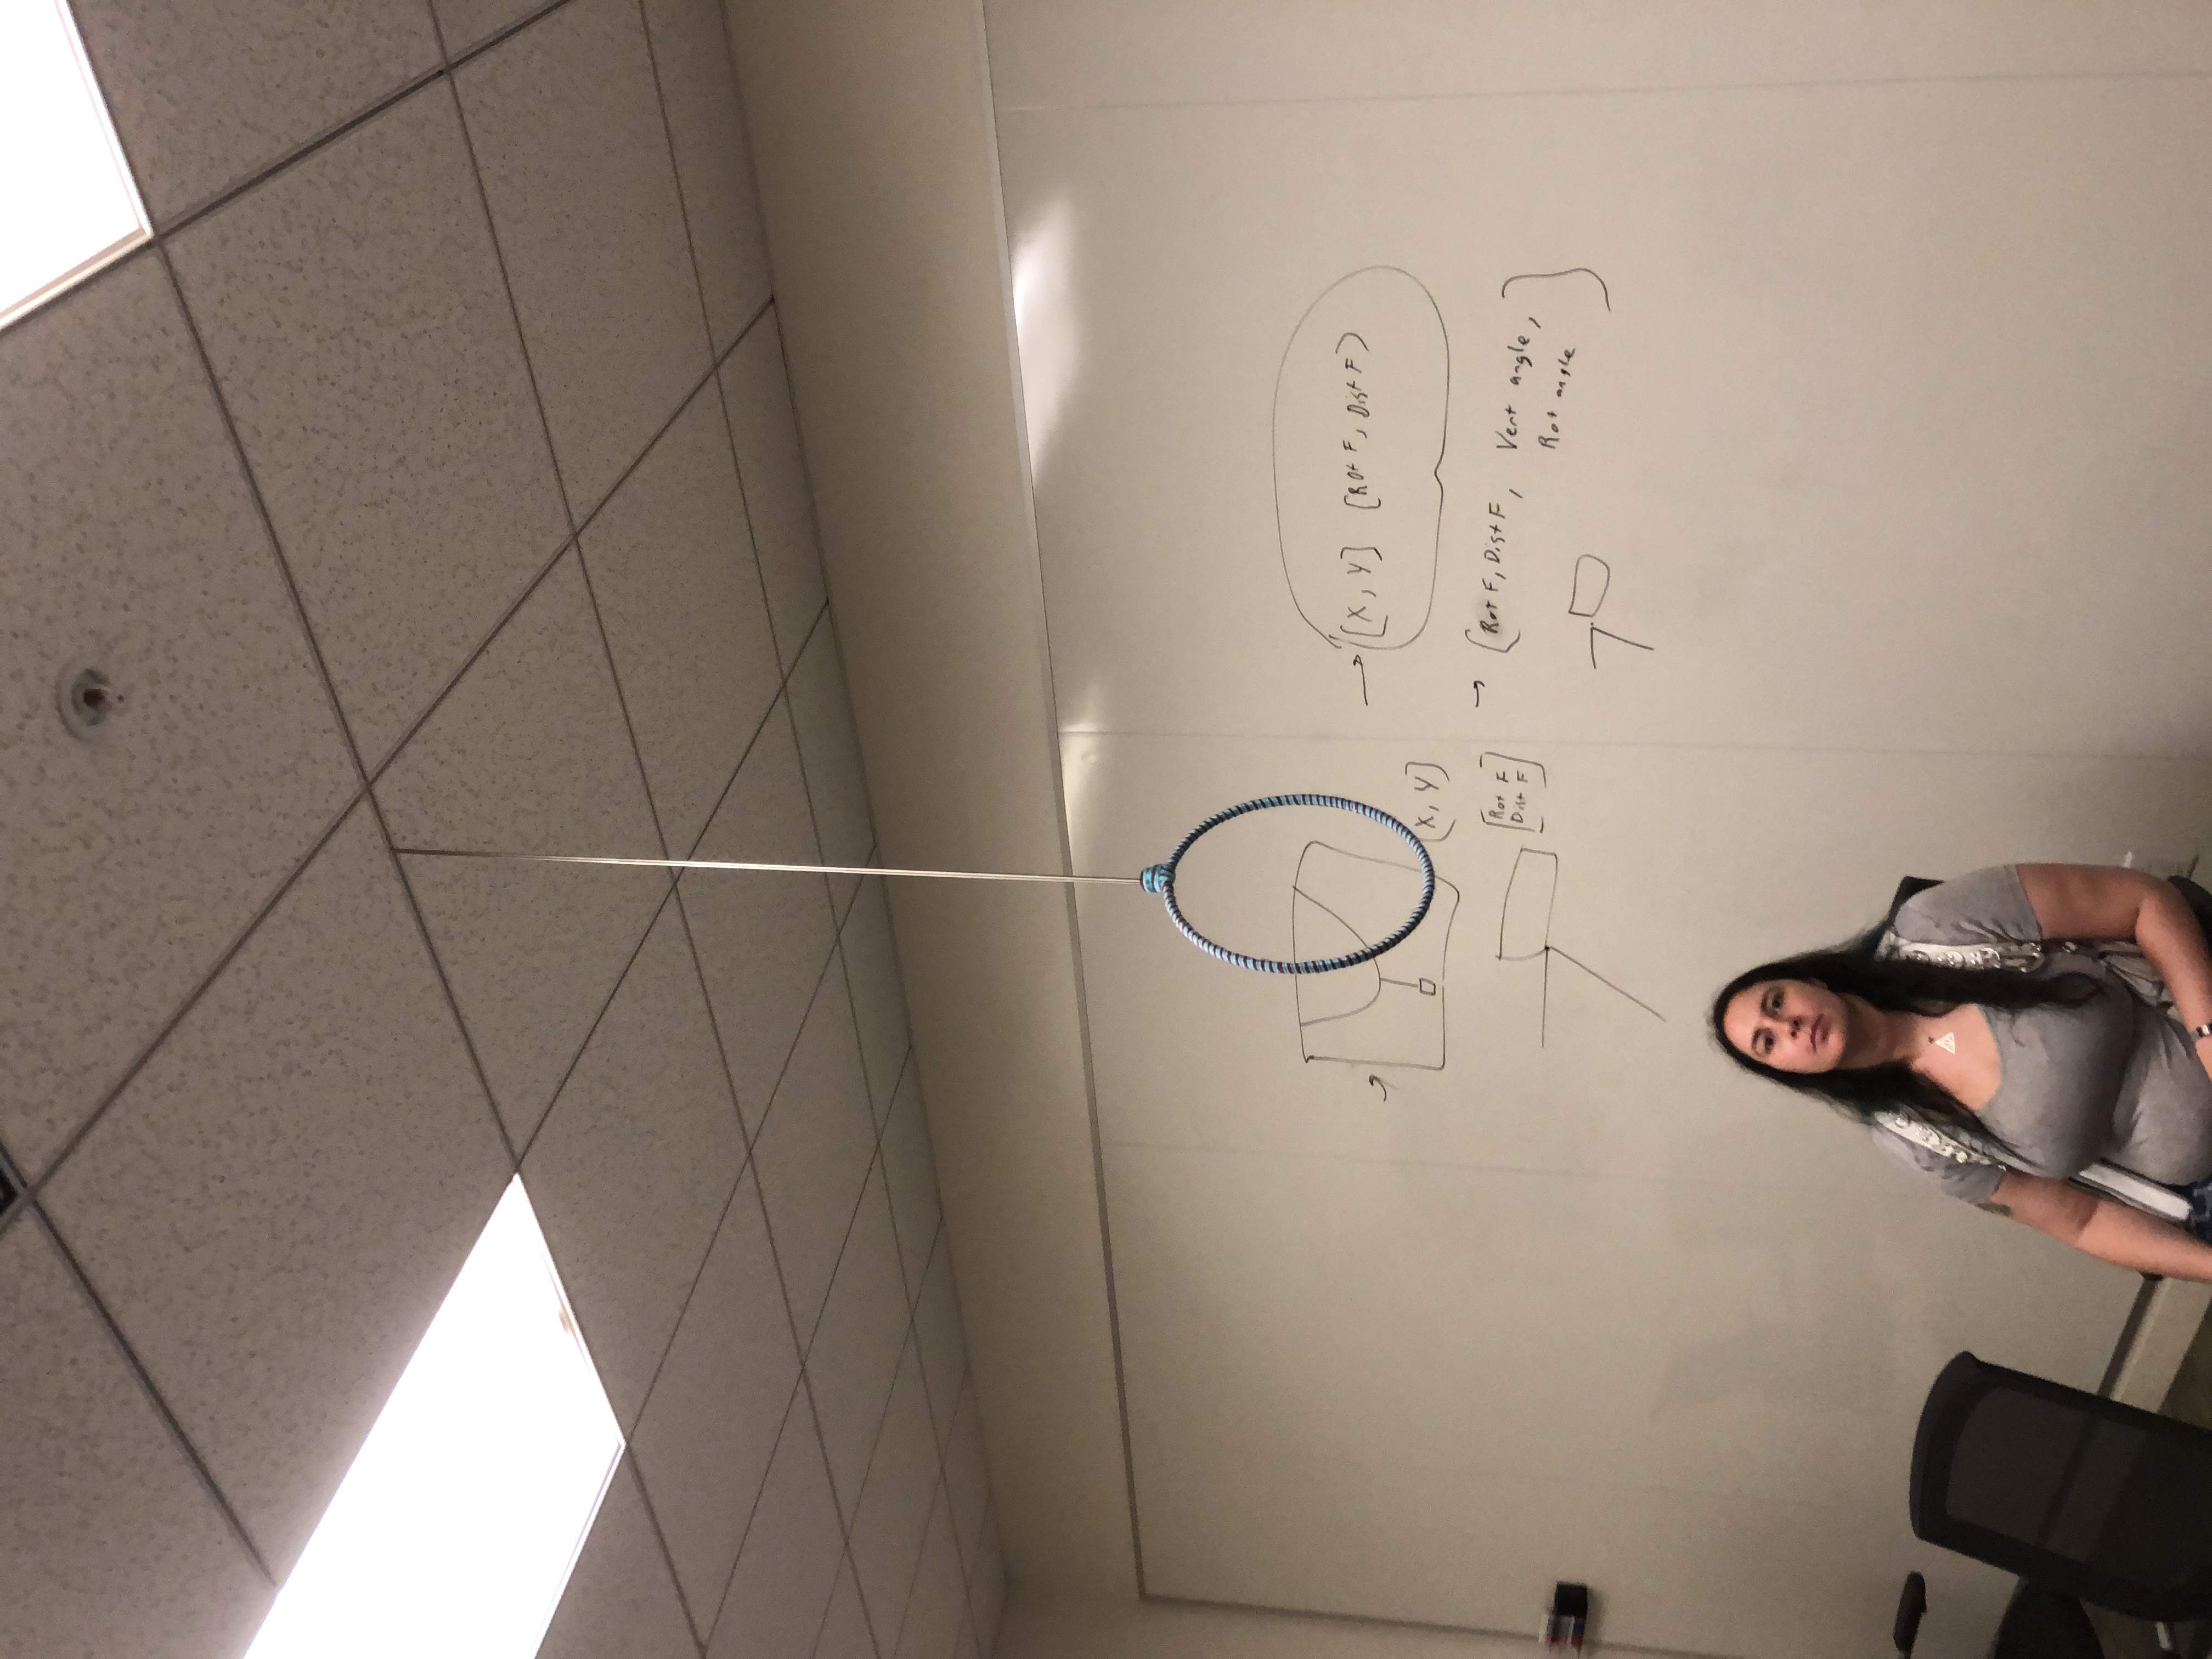 [X, Y]
[Rot F
Dist F]
→ [X, Y] [Rot F, Dist F]
→ [Rot F, Dist F, Vert angle,
Rot angle]